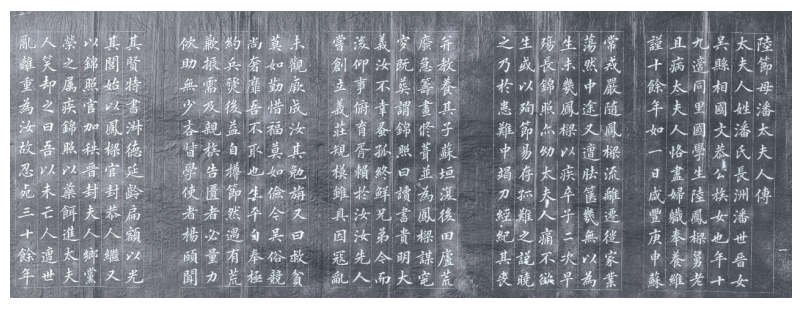 陸節母潘太夫人傳
太夫人姓潘氏長洲潘世晉女
吳縣相國文恭公族女也年十
九適同里國學生陸鳳樑舅老
且病太夫人恪盡婦職奉養維
謹十餘年如一日咸豐庚申蘇
常戒嚴隨鳳樑流離遷徙家業
蕩然中途又遭胠篋幾無以為
生未幾鳳樑以疾卒子二次早
殤長錦照尒幼太夫人痛不欲
生或以殉節易存孤難之說曉
之乃於患難中竭力經紀其喪
并教養其子蘇垣復後田廬荒
廢急籌晝修葺並為鳳樑謀窀
穸既葬謂錦照曰讀書貴明大
義汝不幸蚤孤終鮮兄弟令而
後仰事俯育胥賴於汝汝先人
嘗創立義莊規模雖具因寇亂
未觀厥成汝其勉旃又曰救貧
莫如勤惜福莫如儉令吳俗競
尚奢靡吾不取也生平自奉極
約兵燹後益自撙節然遇有荒
歉振需及親族告匱者必量力
佽助無少吝嗇學使者楊頤聞
其賢特書淋德延齡扁額以光
其閭始以鳳樑官封恭人繼又
以錦照官加秩晉封夫人鄉黨
榮之属疾錦照以藥餌進太夫
人笑却之曰吾以未亡人遭世
亂離重為汝故忍死三十餘年